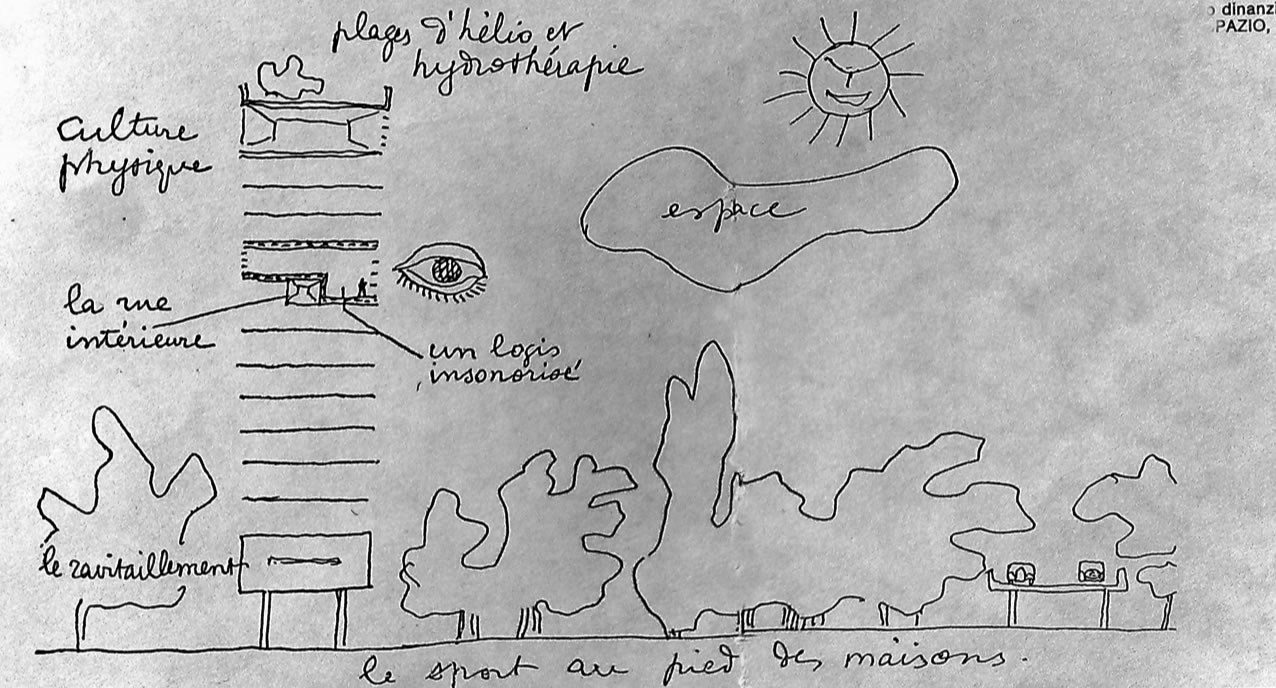 o dinanzi
PAZIO,
plages d'hélio et
hydrothérapie
culture
physique
espace
la rue
intérieure
un logis
insonorisé
le ravitaillement
le sport au pied des maisons.